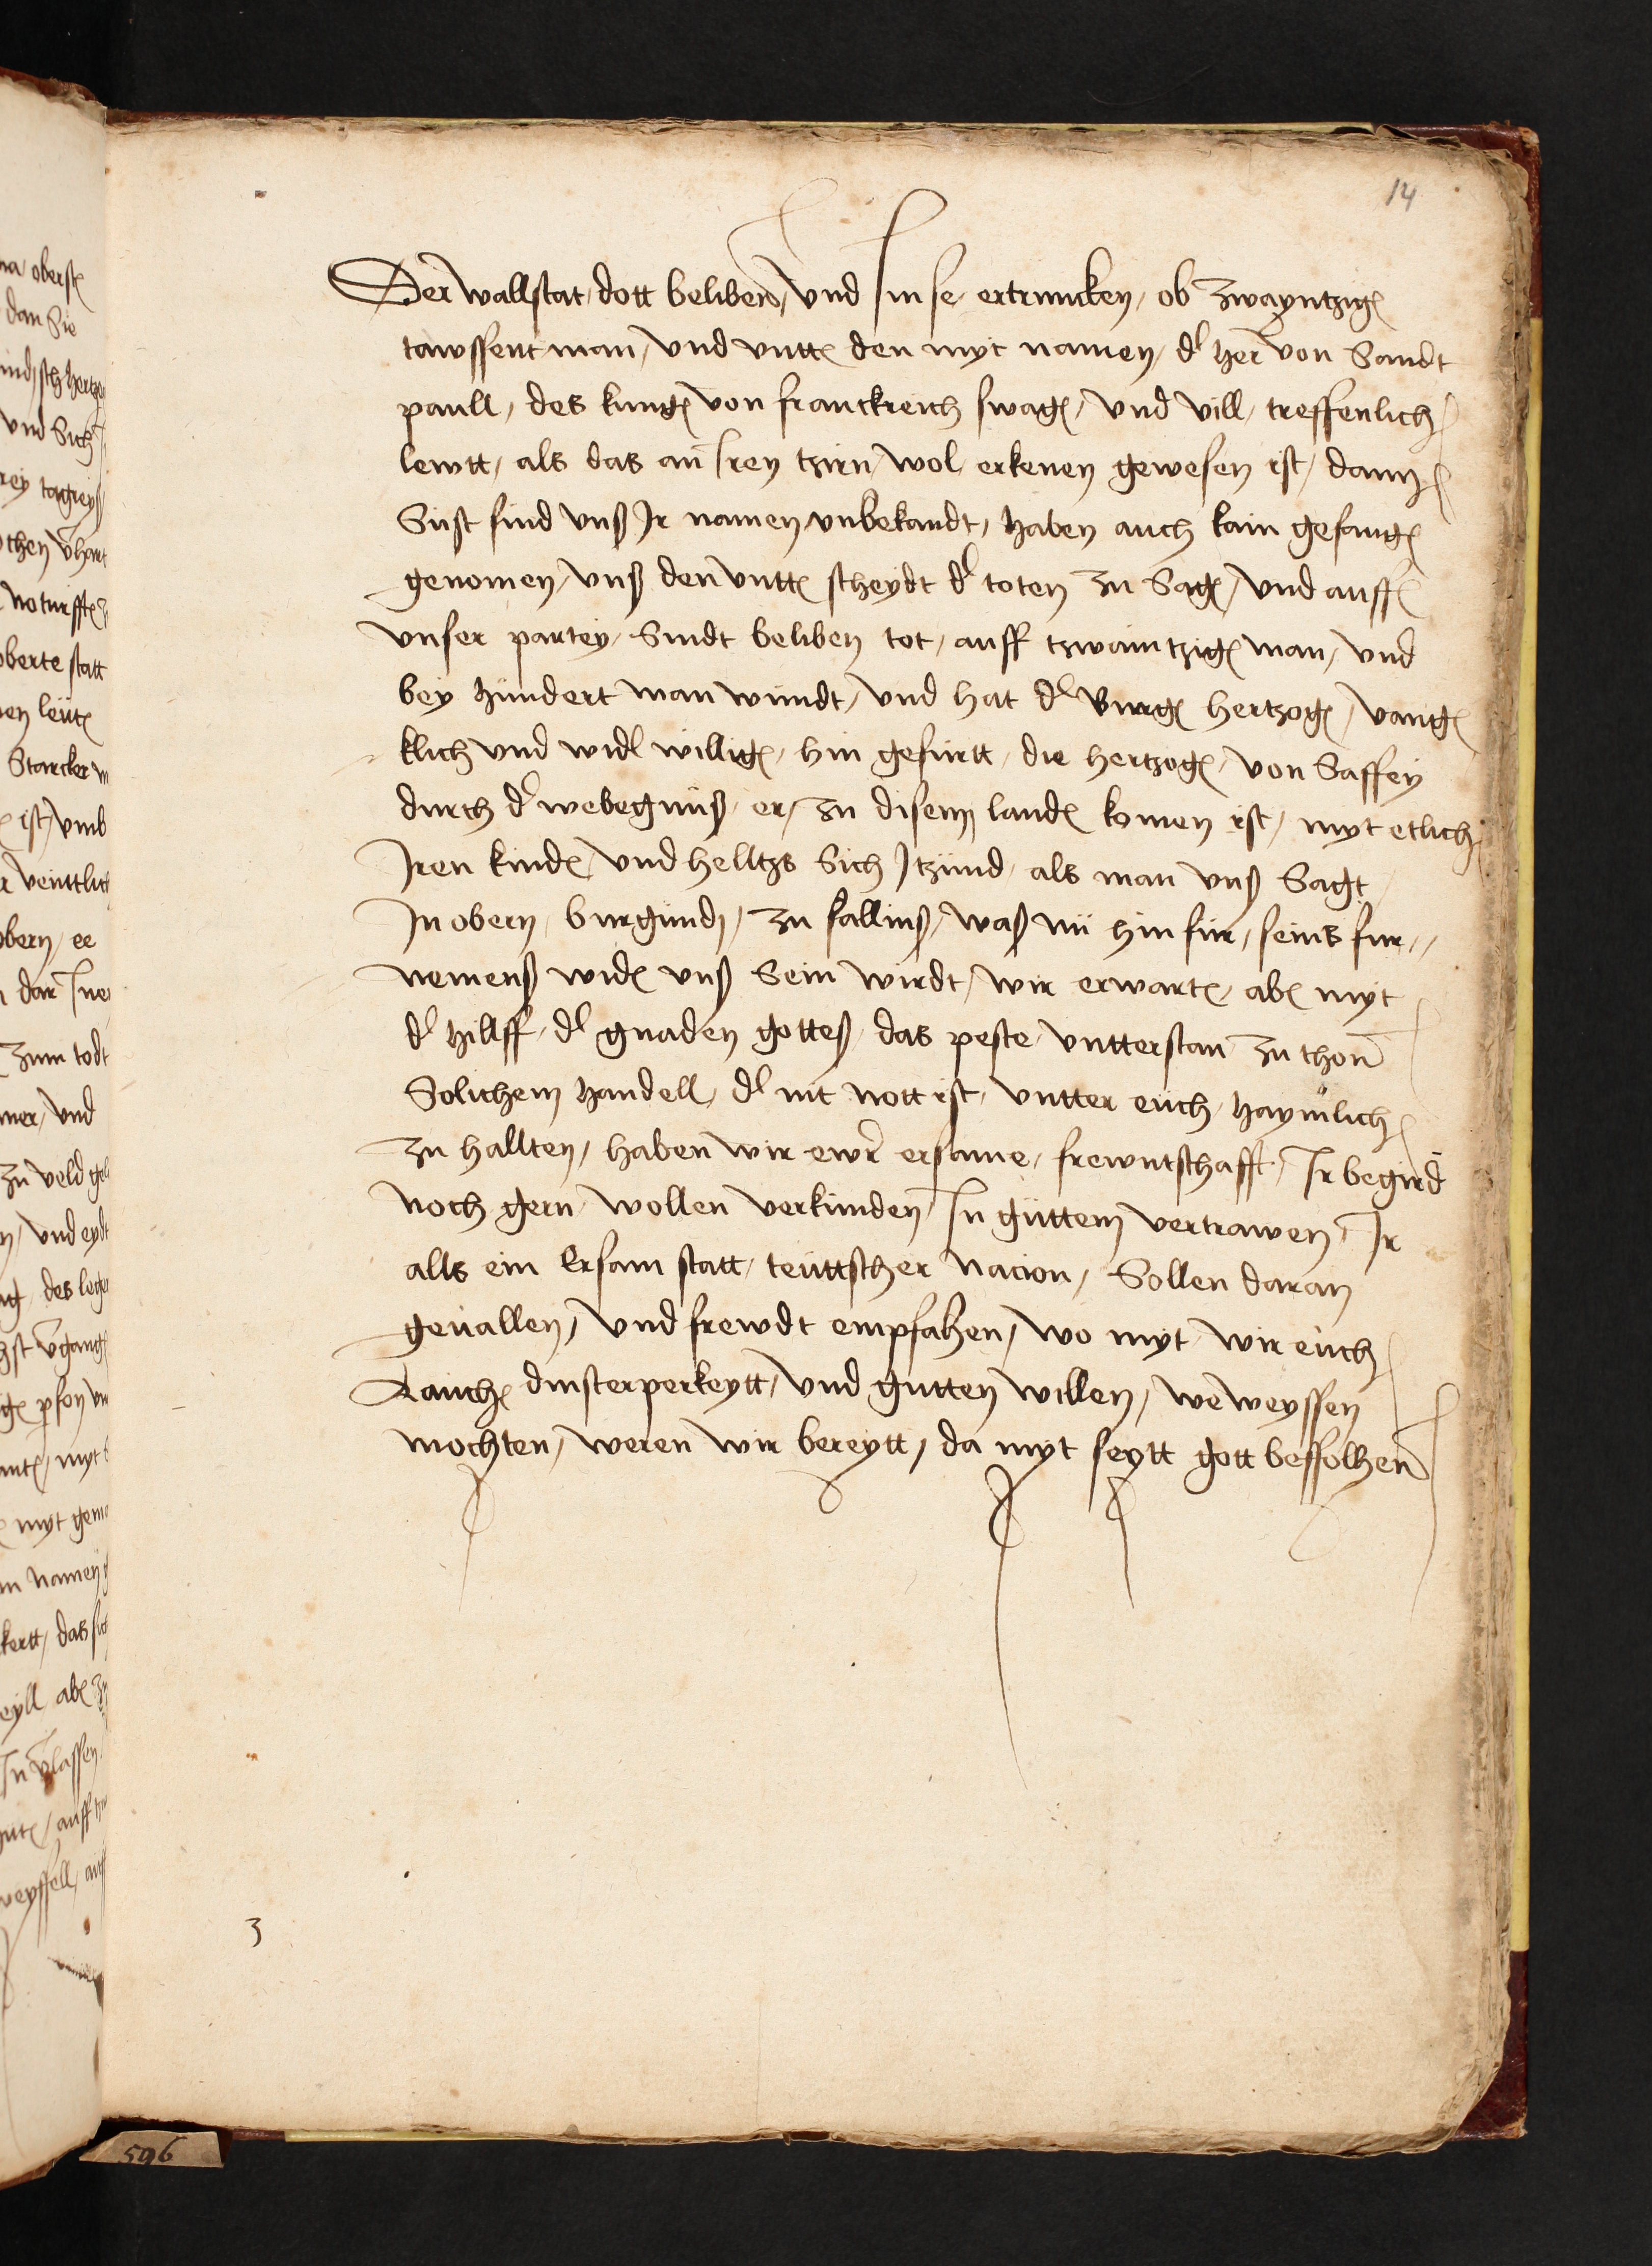 14
Der wallstat, dott beliben, vnd Im se, ertruncken, ob zwayntzigᷓ
tawssent man, vnd vnttᷓ den myt namen, dˀ her von Sandt
paull, des kungᷓ von franckreich swagᷓ, vnd vill, treffenlich
lewtt, als das an Iren tzirn, wol erkenen gewesen ist, dann
Sust sind vnß Ir namen vnbekandt, haben auch kain gefangᷓ
genomen, vnß den vnttᷓ scheydt dˀ toten zu Sagᷓ, vnd auff
vnser partey, Sindt beliben tot, auff tzwaintzigᷓ man, vnd
bey hundert man wundt, vnd hat dˀ Burgᷓ hertzogᷓ, vangᷓ
klich vnd widˀ willigᷓ, hin gefurtt, die hertzogᷓ, von Saffey
durch dˀ webegnuß, er, zu disem landᷓ komen ist, myt etlich
Iren kindᷓ, vnd helltzs Sich Itzund, als man vnß Sagt
In obern, burgundj, zu sallinß, waß nu hin fur, seins fur,,
nemenß widᷓ vnß Sein wirdt, wir erwartᷓ, abᷓ myt
dˀ hillff, dˀ gnaden gotteß, das peste, vntterstan zu thon
Solichem handell, dˀ nit nott ist, vntter euch, haymlich
zu hallten, haben wir ewr ersame, frewntschafft, Ir begird
noch gern, wollen verkunden, In guttem vertrawen, Ir
alls ein Ersam statt, teuttscher nacion, Sollen daran
geuallen, vnd frewdt empfahen, wo myt wir euch
dinsterperkeytt, vnd gutten willen, we weyssen
mochten, weren wir bereytt, da myt seytt gott beffolhen
3
596